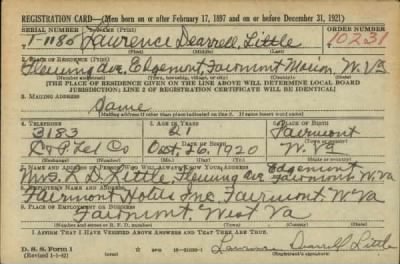 REGISTRATION CARD—(Men born on or after February 17, 1897 and on or before December 31, 1921)
SERIAL NUMBER 1. NAME (Print) ORDER NUMBER
T-1180 Lawrence Dearrell Little 10231
(First) (Middle) (Last)
2. PLACE OF RESIDENCE (Print)
Fleming Ave, Edgemont, Fairmont Marion, W. Va
(Number and street) (Town, township, village, or city) (County) (State)
[THE PLACE OF RESIDENCE GIVEN ON THE LINE ABOVE WILL DETERMINE LOCAL BOARD
JURISDICTION; LINE 2 OF REGISTRATION CERTIFICATE WILL BE IDENTICAL]
3. MAILING ADDRESS
Same
[Mailing address if other than place indicated on line 2. If same insert word same]
4. TELEPHONE 5. AGE IN YEARS 6. PLACE OF BIRTH
3183 21 Fairmont
DATE OF BIRTH (Town or county)
C & P Tel Co Oct. 26, 1920 W. Va
(Exchange) (Number) (Mo.) (Day) (Yr.) (State or country)
7. NAME AND ADDRESS OF PERSON WHO WILL ALWAYS KNOW YOUR ADDRESS Edgemont
Mrs. Little, Fleming Ave Fairmont, W. Va
8. EMPLOYER'S NAME AND ADDRESS
Fairmont Hotel Inc. Fairmont, W Va
9. PLACE OF EMPLOYMENT OR BUSINESS
Fairmont, West Va
(Number and street or R. F. D. number) (Town) (County) (State)
I AFFIRM THAT I HAVE VERIFIED ABOVE ANSWERS AND THAT THEY ARE TRUE.
D. S. S. Form 1
(Revised 1-1-42) (over) Lawrence Dearrell Little
(Registrant's signature)